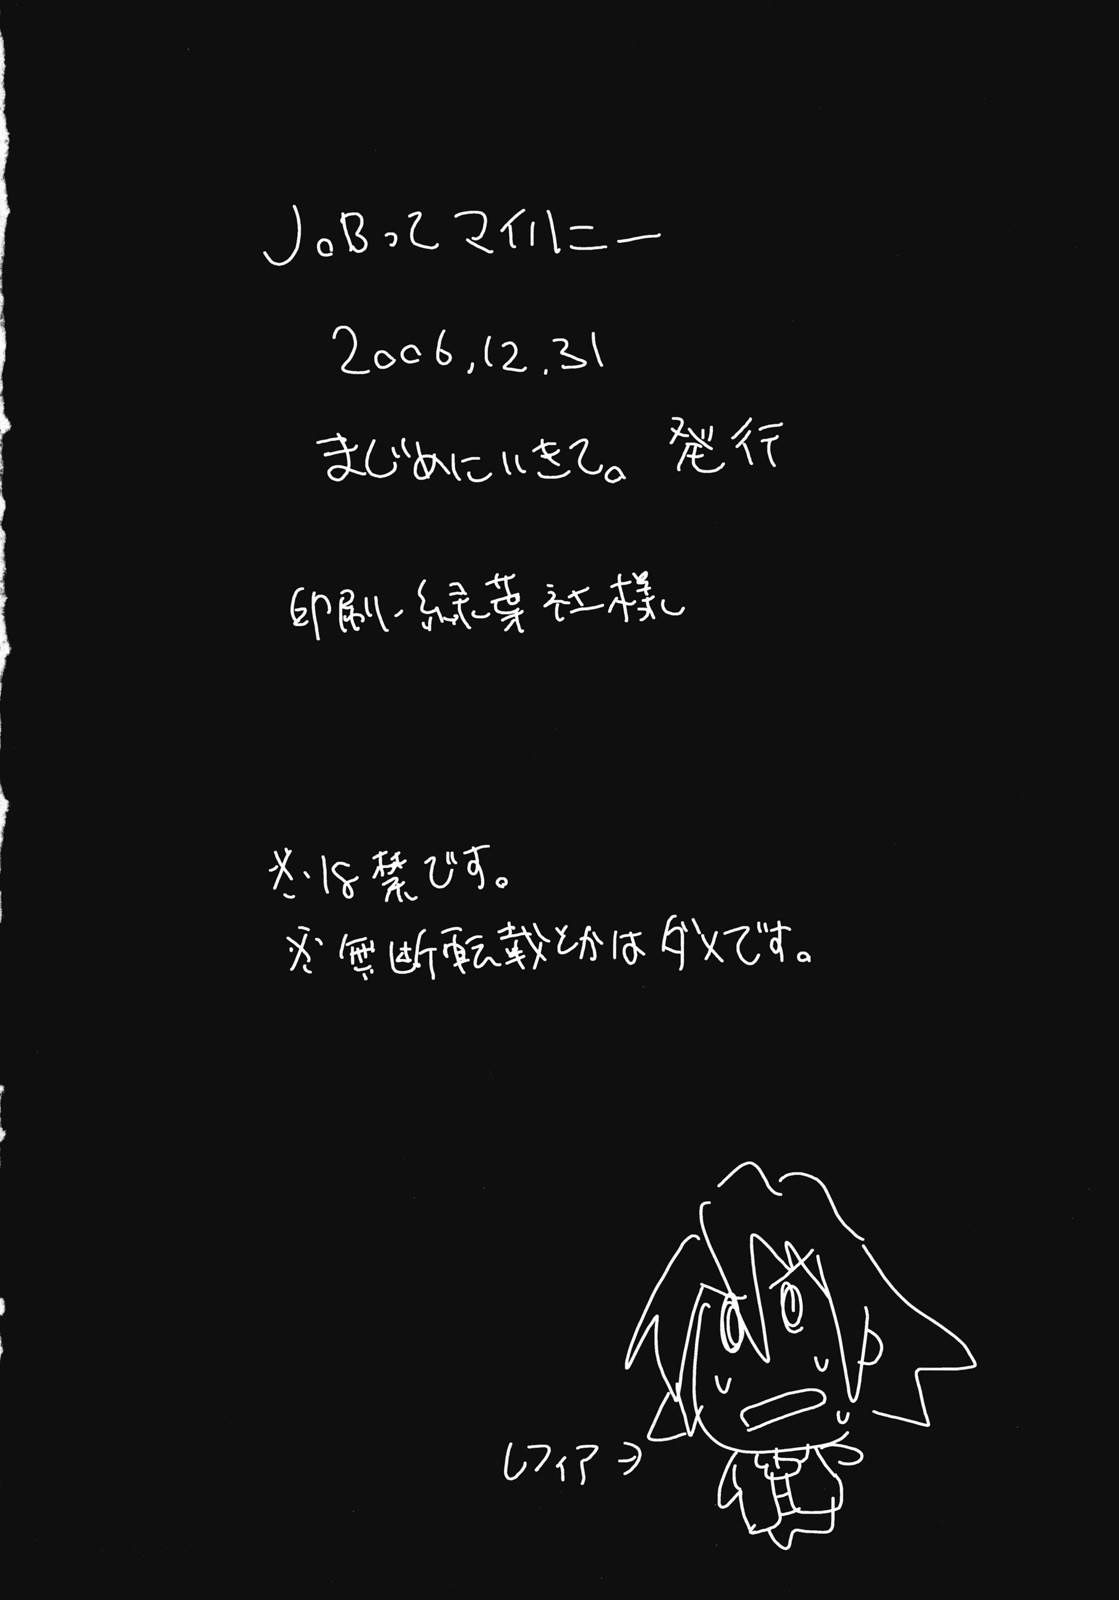 JoBってマイハニー
2006.12.31
まじめにいきて。 発行
印刷・緑葉社様
※・18禁です。
※・無断転載とかはダメです。
レフィア→